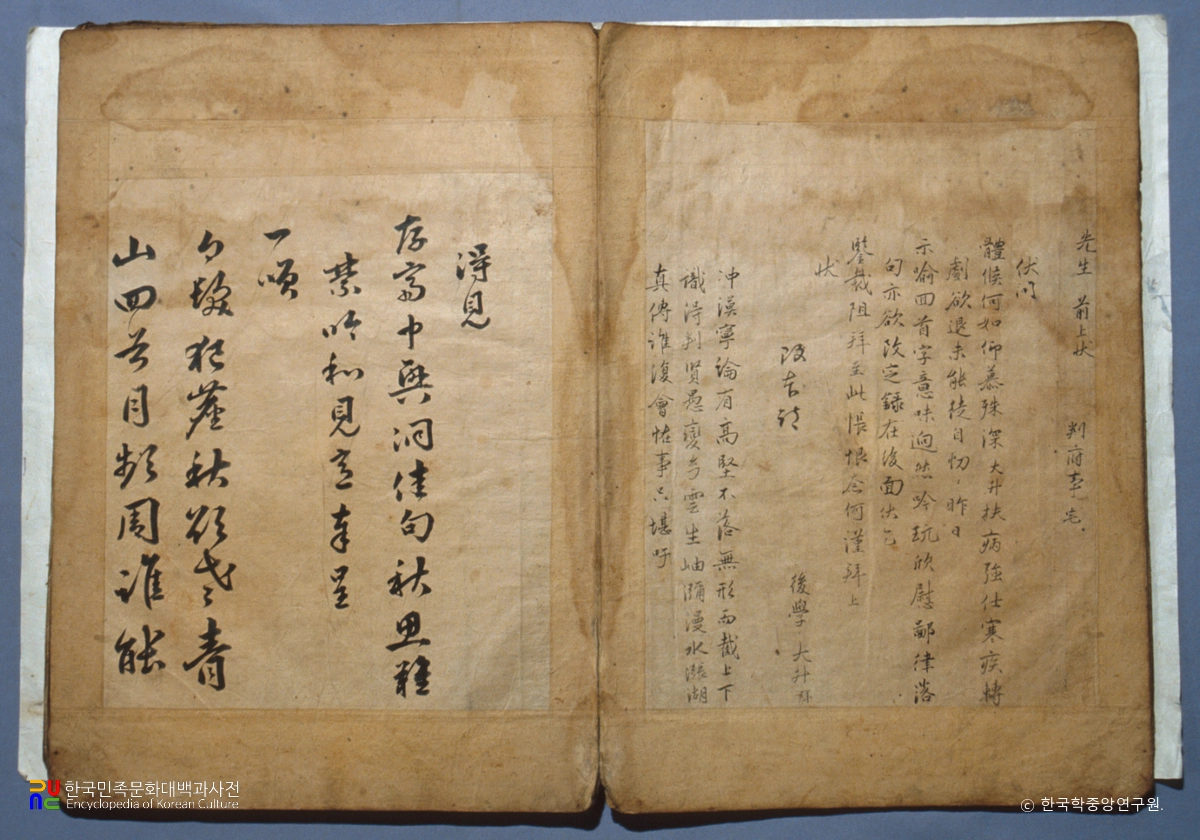 先生 前上狀 判府事宅
伏問
體候何如仰慕殊深大升扶病強仕寒疾轉
劇欲退未能徒自忉忉昨日
示喩四首字意味逈然吟玩欣慰鄙律落
句亦欲改定錄在後面伏乞
鑒裁阻拜至此悵恨奈何謹拜上
狀
後學 大升 拜
改者詩
冲漠寧論有高堅不落無形兩截上下
識得判賢愚變兮雲生岫瀰漫水漲湖
眞傳誰復會怪事只堪吁
得見
存齋中興洞佳句秋思難
禁吟和見意奉呈
一噸
秋欲老青
山四 月 周誰能
한국민족문화대백과사전
Encyclopedia of Korean Culture
© 한국학중앙연구원.